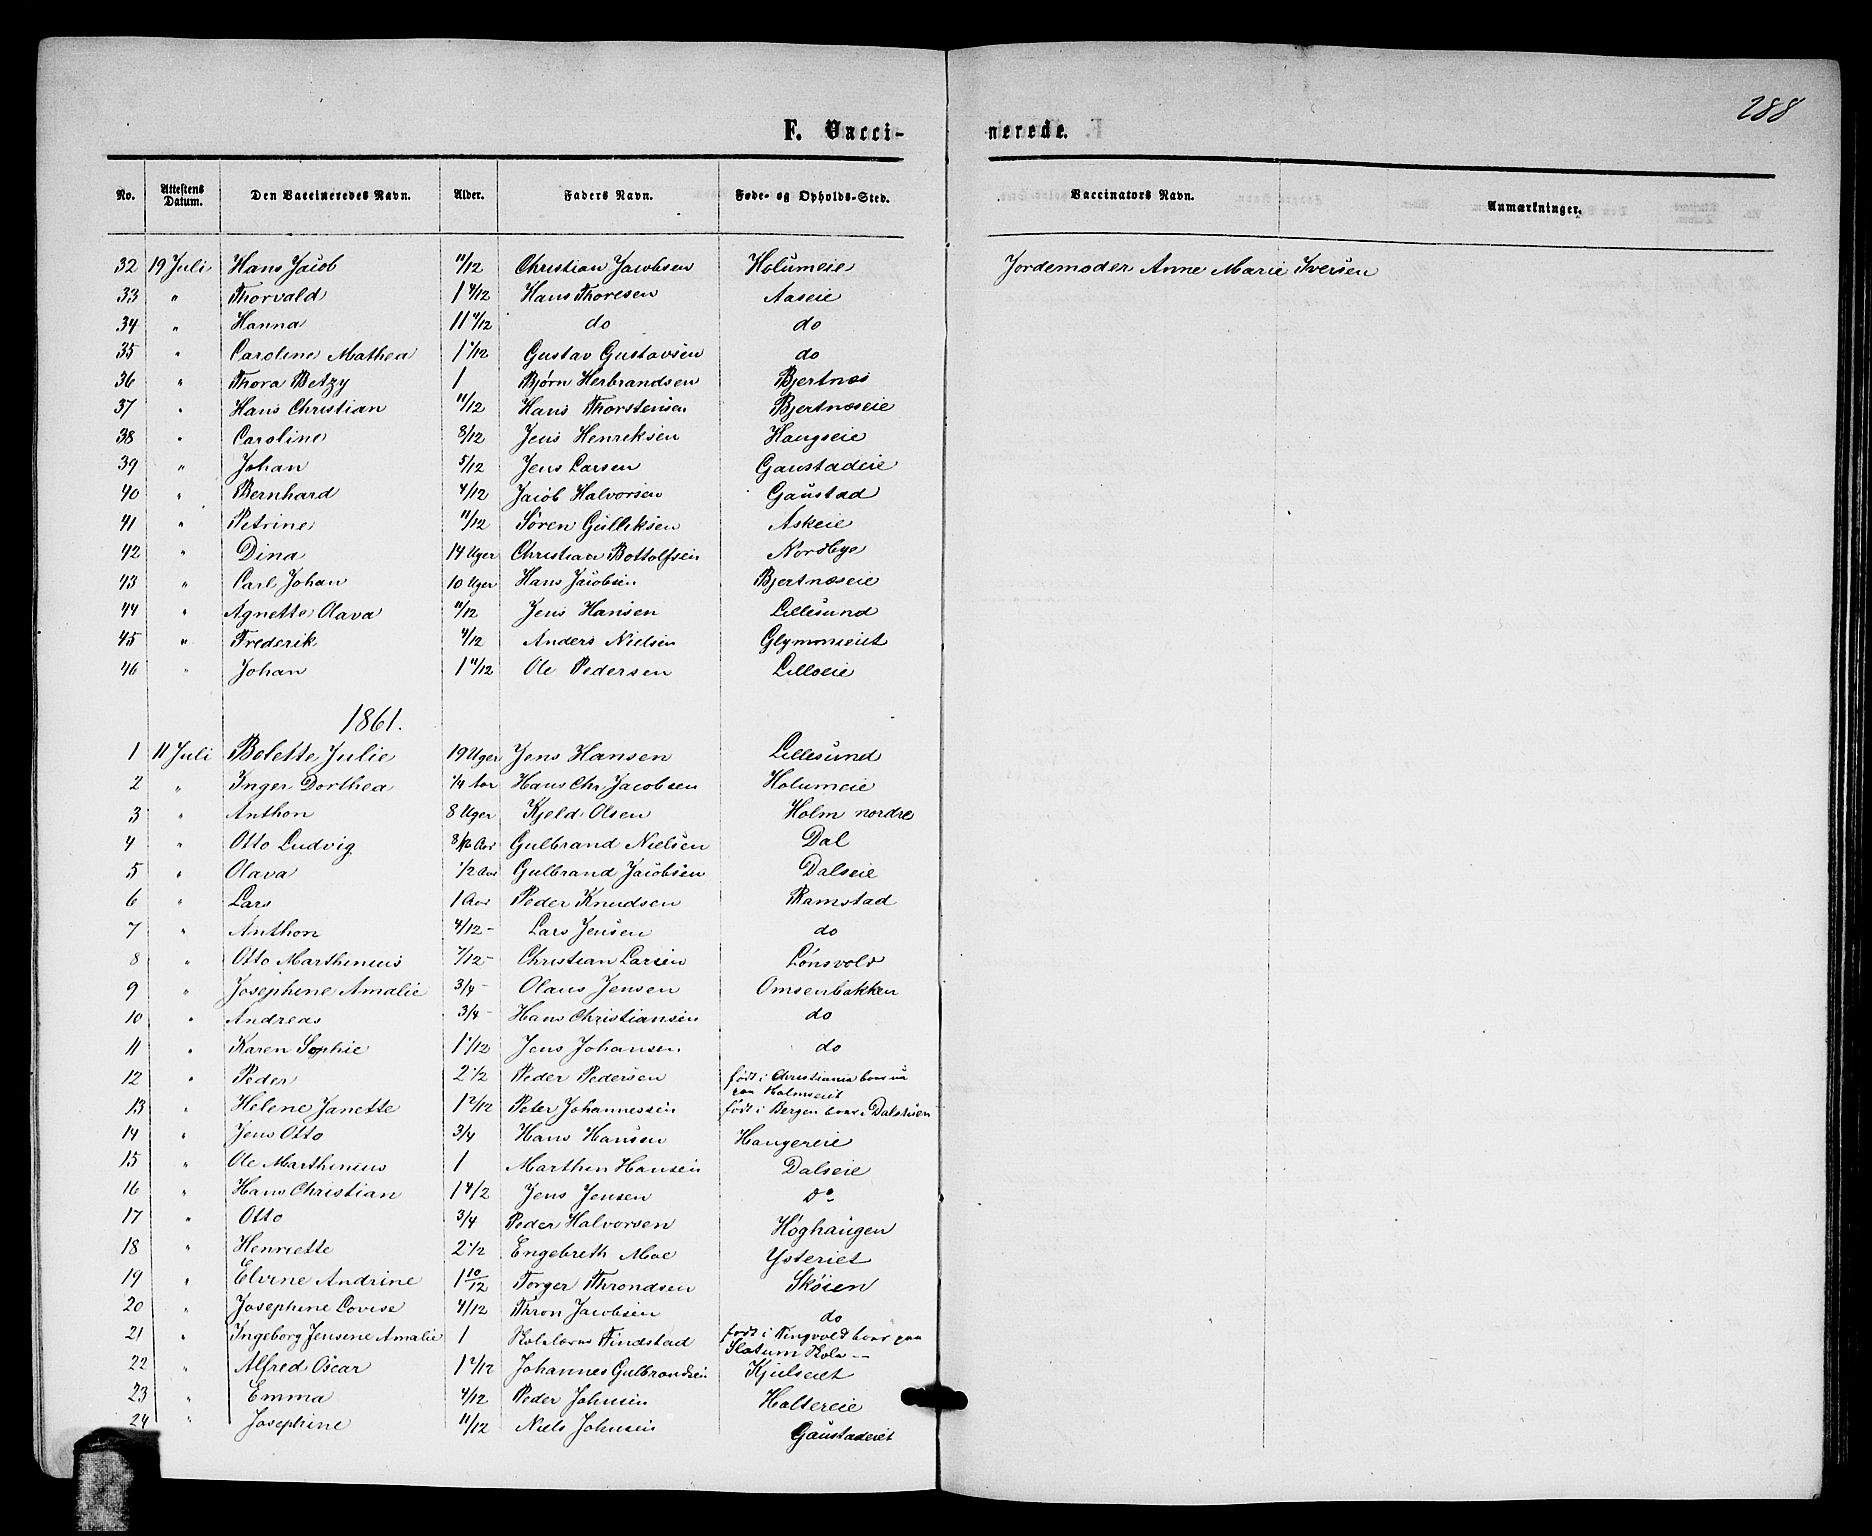 288
F. Vaccinerede.
No. Attestens Datum. Den Vaccineredes Navn. Alder. Faders Navn. Føde- og Opholds-Sted. Vaccinators Navn. Anmærkninger.
32 19 Juli Hans Jacob 11/12 Christian Jacobsen Holumeie Jordemoder Anne Marie Iversen
33 " Thorvald 1 4/12 Hans Thoresen Aaseie
34 " Hanna 11 4/12 do do
35 " Caroline Mathea 1 1/12 Gustav Gustavsen do
36 " Thora Betzy 1 Bjørn Herbrandsen Bjertnæs
37 " Hans Christian 11/12 Hans Thorstensen Bjertnæseie
38 " Caroline 8/12 Jens Henriksen Haugseie
39 " Johan 5/12 Jens Larsen Gaustadeie
40 " Bernhard 4/12 Jacob Halvorsen Gaustad
41 " Petrine 11/12 Søren Gulliksen Askeie
42 " Dina 14 Uger Christian Bottolfsen Nordbye
43 " Carl Johan 10 Uger Hans Jacobsen Bjertnæseie
44 " Agnette Olava 11/12 Jens Hansen Lillesund
45 " Frederik 4/12 Anders Nielsen Glymmseiet
46 " Johan 1 11/12 Ole Pedersen Lilloeie
1861.
1 11 Juli Bolette Julie 19 Uger Jens Hansen Lillesund
2 " Inger Dorthea 1/4 Aar Hans Chr Jacobsen Holumeie
3 " Anthon 8 Uger Kjeld Olsen Holm nordre
4 " Otto Ludvig Gulbrand Nielsen Dal
5 " Olava 1/2 Aar Gulbrand Jacobsen Dalseie
6 " Lars 1 Aar Peder Knudsen Ramstad
7 " Anthon 4/12 - Lars Jensen do
8 " Otto Marthinius 7/12 - Christian Larsen Lønsvold
9 " Josephine Amalie 3/4 - Olaus Jensen Omsenbakken
10 " Andreas 3/4 - Hans Christiansen do
11 " Karen Sophie 1 1/12 Jens Johansen do
12 " Peder 2 1/2 Peder Pedersen født i Christiania boer nu
paa Holmseiet
13 " Helene Janette 1 2/12 Peter Johannessen født i Bergen boer i Dalstuen
14 " Jens Otto 3/4 Hans Hansen Haugereie
15 " Ole Marthinius 1 Marthin Hansen Dalseie
16 " Hans Christian 1 4/2 Jens Jensen do
17 " Otto 3/4 Peder Halvorsen Høghaugen
18 " Henriette 2 1/2 Engebreth Moe Ysteriet
19 " Elvine Andrine 1 10/12 Torger Throndsen Skøien
20 " Josephine Lovise 4/12 Thron Jacobsen do
21 " Ingeborg Jensine Amalie 1 Findstad født i Tingvold boer paa
Slatum
22 " Alfred Oscar 1 2/12 Johannes Gulbrandsen Kjulseiet
23 " Emma 4/12 Peder Johnsen Haltereie
24 " Josephine 11/12 Niels Johnsen Gaustadeiet